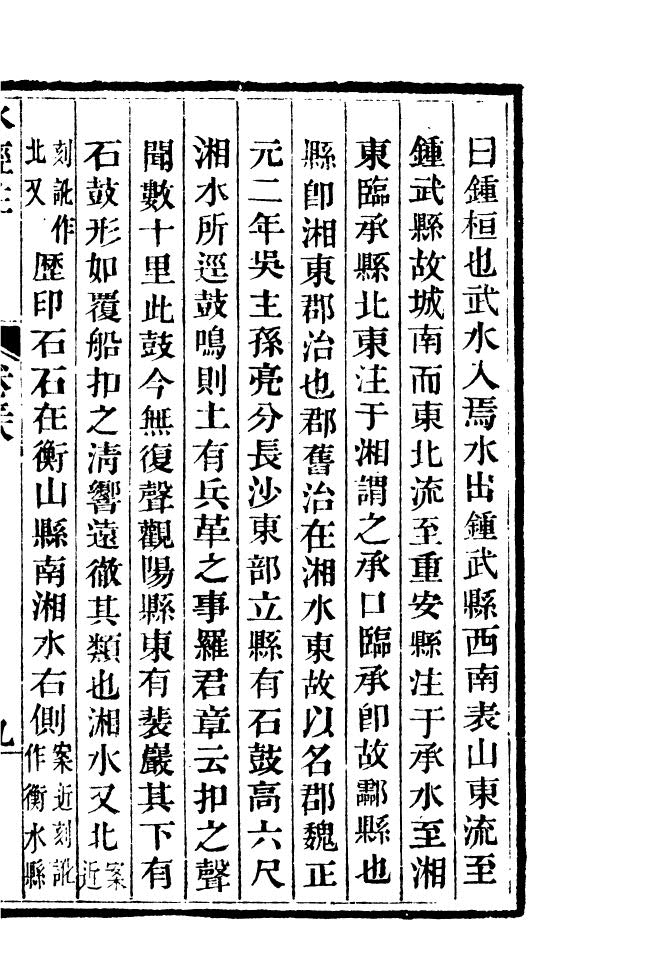 曰鍾桓也武水入焉水出鍾武縣西南表山東流至
鍾武縣故城南而東北流至重安縣注于承水至湘
東臨承縣北東注于湘謂之承口臨承卽故酃縣也
縣卽湘東郡治也郡舊治在湘水東故以名郡魏正
元二年吳主孫亮分長沙東部立縣有石鼓高六尺
湘水所逕鼓鳴則土有兵革之事羅君章云扣之聲
聞數十里此鼓今無復聲觀陽縣東有裴巖其下有
石鼓形如覆船扣之淸響遠徹其類也湘水又北案近
刻訛作北又歷印石石在衡山縣南湘水右側案近刻訛作衡水縣
水經注 卷三八 九